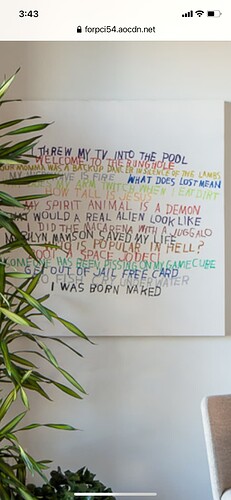 3:43
forpci54.aocdn.net
THREW MY TV INTO THE POOL
WELCOME TO THE BUNGHOLE
MOMMA WAS A BACKUP DANCER IN SILENCE OF THE LAMBS
IS FIRE WHAT DOES LOST MEAN
MY ARM TWITCH WHEN I EAT DIRT
HOW TALL IS JESUS
MY SPIRIT ANIMAL IS A DEMON
WHAT WOULD A REAL ALIEN LOOK LIKE
I DID THE MACARENA WITH A JUGGALO
MARILYN MANSON SAVED MY LIFE
IS POPULAR IN HELL?
SPACE JODECI
SOMEONE HAS BEEN PISSING ON MY GAMECUBE
GET OUT OF JAIL FREE CARD
DO FISH CRY UNDER WATER
I WAS BORN NAKED